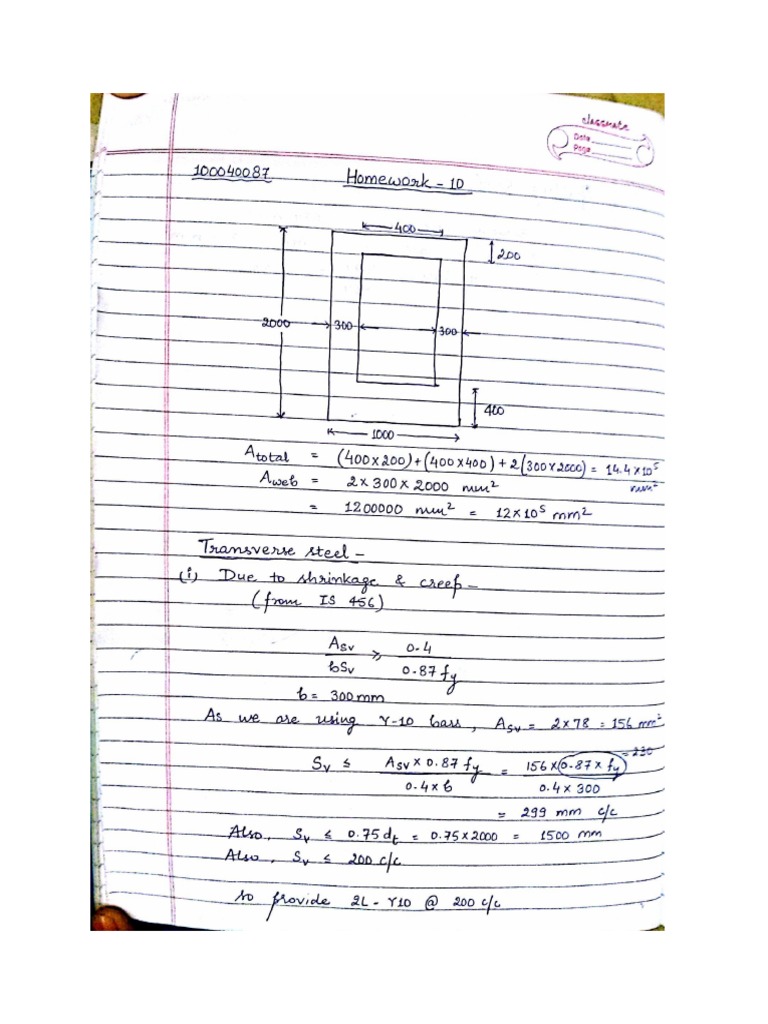 classmate
Date
Page
100040087 Homework - 10
400
200
2000 300 300
400
1000
A total = (400 x 200) + (400 x 400) + 2(300 x 2000) = 14.4 x 10⁵ mm²
A web = 2 x 300 x 2000 mm²
= 1200000 mm² = 12 x 10⁵ mm²
Transverse steel -
(i) Due to shrinkage & creep -
(from IS 456)
Asv / bSv ≥ 0.4 / 0.87 fy
b = 300 mm
As we are using Y-10 bars, Asv = 2 x 78 = 156 mm²
Sv ≤ Asv x 0.87 fy / 0.4 x b = 156 x (0.87 x fy) / 0.4 x 300 = 230
= 299 mm c/c
Also, Sv ≤ 0.75 dt = 0.75 x 2000 = 1500 mm
Also, Sv ≤ 200 c/c
so provide 2L - Y10 @ 200 c/c